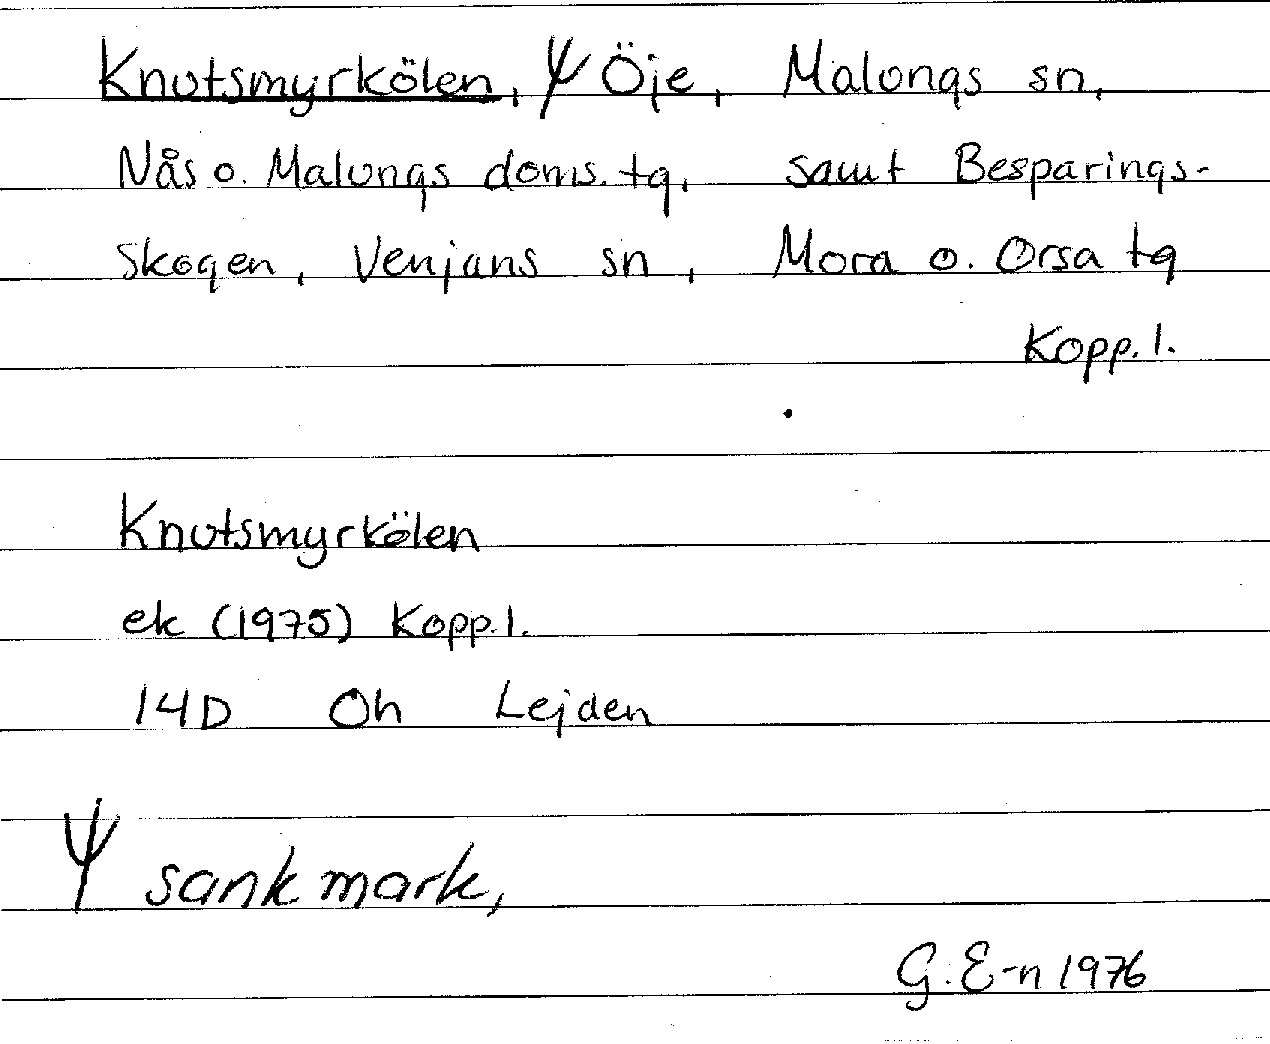 Knutsmyrkölen, ψ Öje, Malungs sn,
Nås o. Malungs doms. tg, samt Besparings-
skogen, Venjans sn, Mora o. Orsa tg
Kopp. l.
Knutsmyrkölen
ek (1975) Kopp. l.
14D 0h Lejden
ψ sankmark,
G. E-n 1976